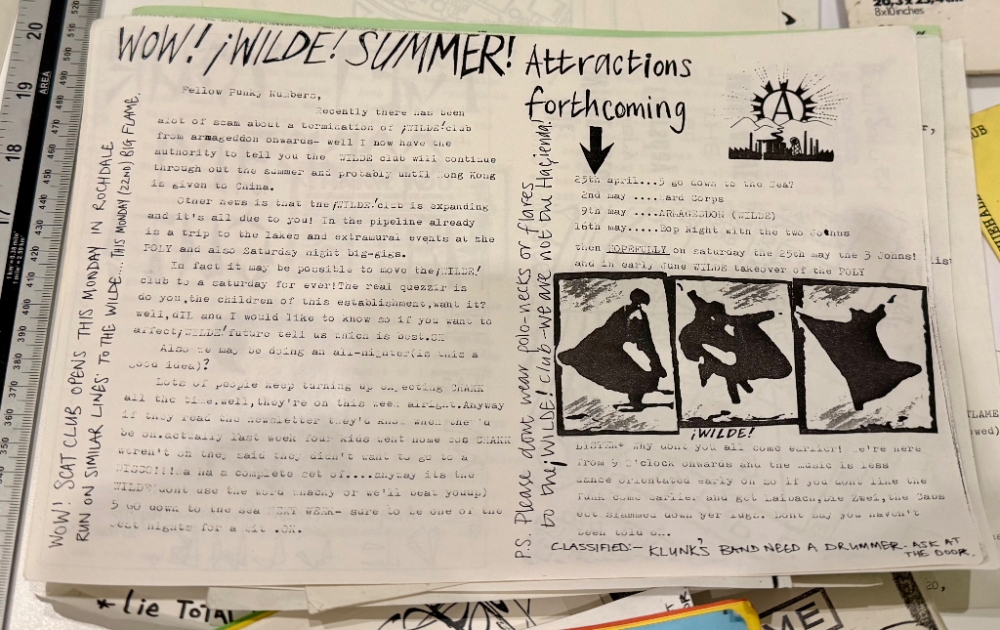 WOW! ¡WILDE! SUMMER!
Fellow Punky Numbers,
Recently there has been
alot of scam about a termination of ¡WILDE! club
from armageddon onwards- well I now have the
authority to tell you the WILDE club will continue
through out the summer and probably until Hong Kong
is given to China.
Other news is that the ¡WILDE! club is expanding
and it's all due to you! In the pipeline already
is a trip to the lakes and extramural events at the
POLY and also Saturday night big-gigs.
In fact it may be possible to move the ¡WILDE!
club to a saturday for ever! The real quezzir is
do you, the children of this establishment, want it?
well, dIL and I would like to know so if you want to
affect ¡WILDE! future tell us which is best. OK
Also we may be doing an all-nighter (is this a
good idea)?
Lots of people keep turning up expecting SHARK
all the time, well, they're on this week alright. Anyway
if they read the newsletter they'd know when the'd
be on. actually last week four kids went home cos SHARK
weren't on they said they didn't want to go to a
DISCO!!!! a ha a complete set of.... anyway its the
WILDE dont use the word whacky or we'll beat youup)
5 go down to the sea NEXT WEEK- sure to be one of the
best nights for a bit .OK.
WOW! SCAT CLUB OPENS THIS MONDAY IN ROCHDALE
RUN ON SIMILAR LINES TO THE WILDE.... THIS MONDAY (22ND) BIG FLAME.
Attractions
forthcoming
25th april...5 go down to the Sea?
2nd may ....Hard Corps
9th may .....ARMAGEDDON (WILDE)
16th may.....Bop Night with the two
then HOPEFULLY on saturday the 25th may the 3 Johns!
and in early June WILDE takeover of the POLY
¡WILDE!
LISTEN+ Why dont you all come earlier! We're here
from 9 O'clock onwards and the music is less
dance orientated early on so if you dont like the
funk come earlier and get Laibach, Die Zwei, the Cabs
ect slammed down yer lugs. Dont say you haven't
been told O..
P.S. Please dont wear polo-necks or flares
to the ¡WILDE! Club - we are not the Haçienda!
CLASSIFIED:- KLUNK'S BAND NEED A DRUMMER - ASK AT
THE DOOR.
A
* lie TOTAL
8x10inches
AREA
20
19
18